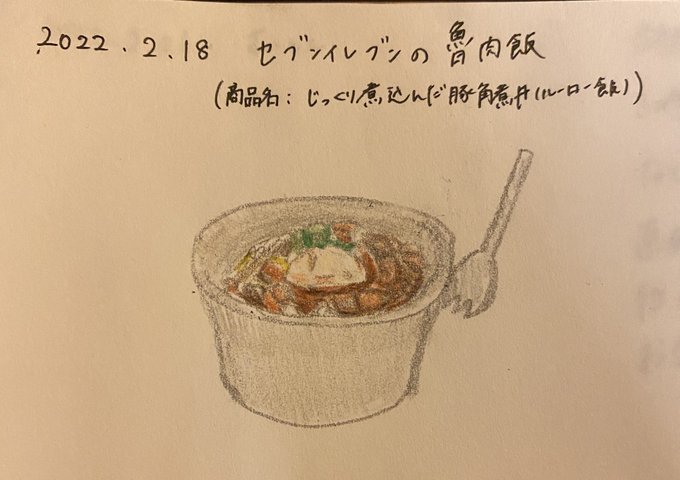 2022.2.18 セブンイレブンの魯肉飯
(商品名:じっくり煮込んだ豚角煮丼(ルーロー飯))